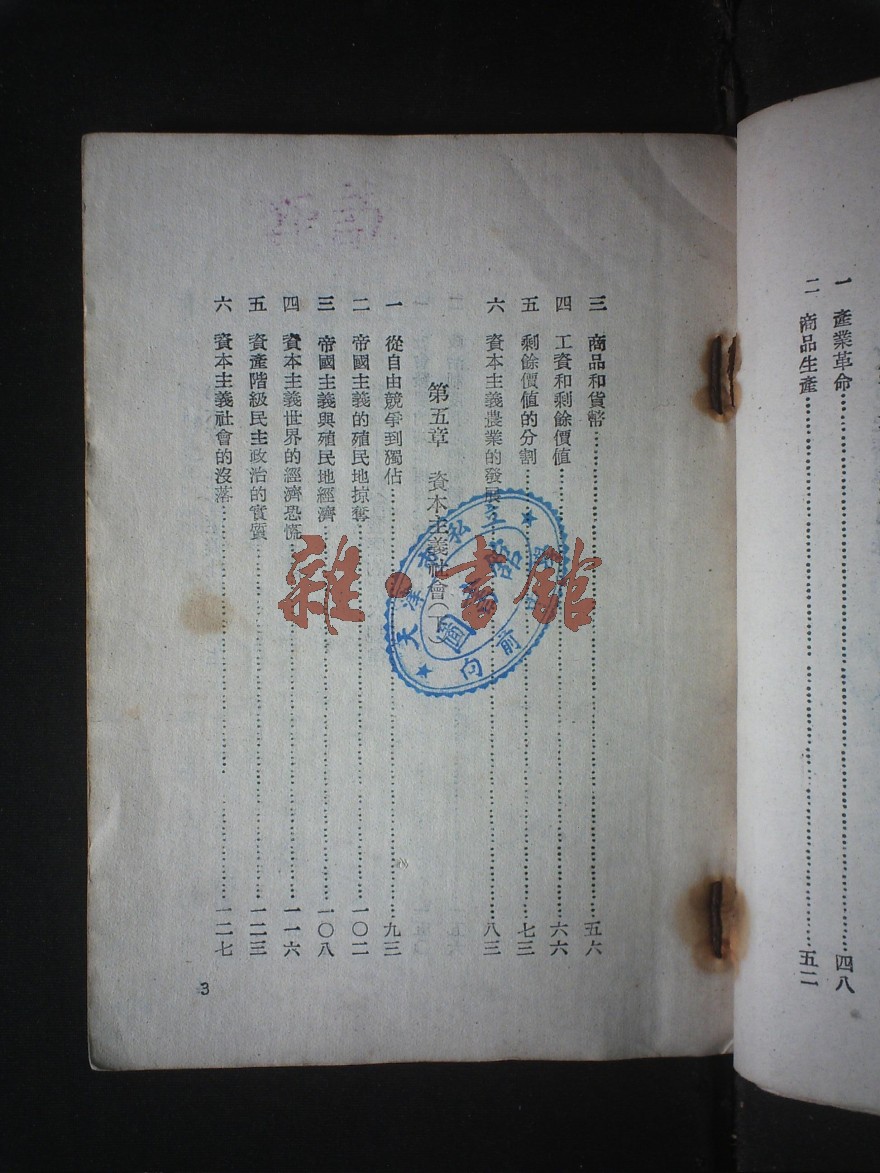 一 產業革命……四八
二 商品生產……五二
三 商品和貨幣……五六
四 工資和剩餘價值……六六
五 剩餘價值的分割……七三
六 資本主義農業的發展……八三
第五章 資本主義社會（下）
一 從自由競爭到獨佔……九三
二 帝國主義的殖民地掠奪……一〇二
三 帝國主義與殖民地經濟……一〇八
四 資本主義世界的經濟恐慌……一一六
五 資產階級民主政治的實質……一二三
六 資本主義社會的沒落……一二七
3
雜·書館
天津市私立
向前